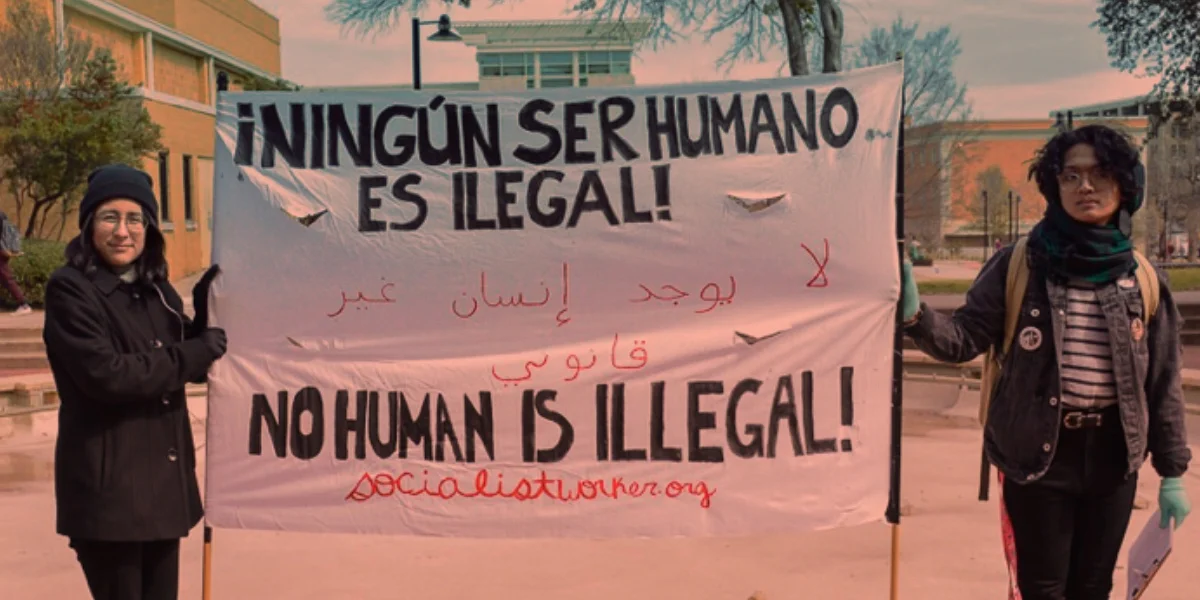 ¡NINGÚN SER HUMANO
ES ILEGAL!
لا يوجد إنسان غير
قانوني
NO HUMAN IS ILLEGAL!
socialistworker.org